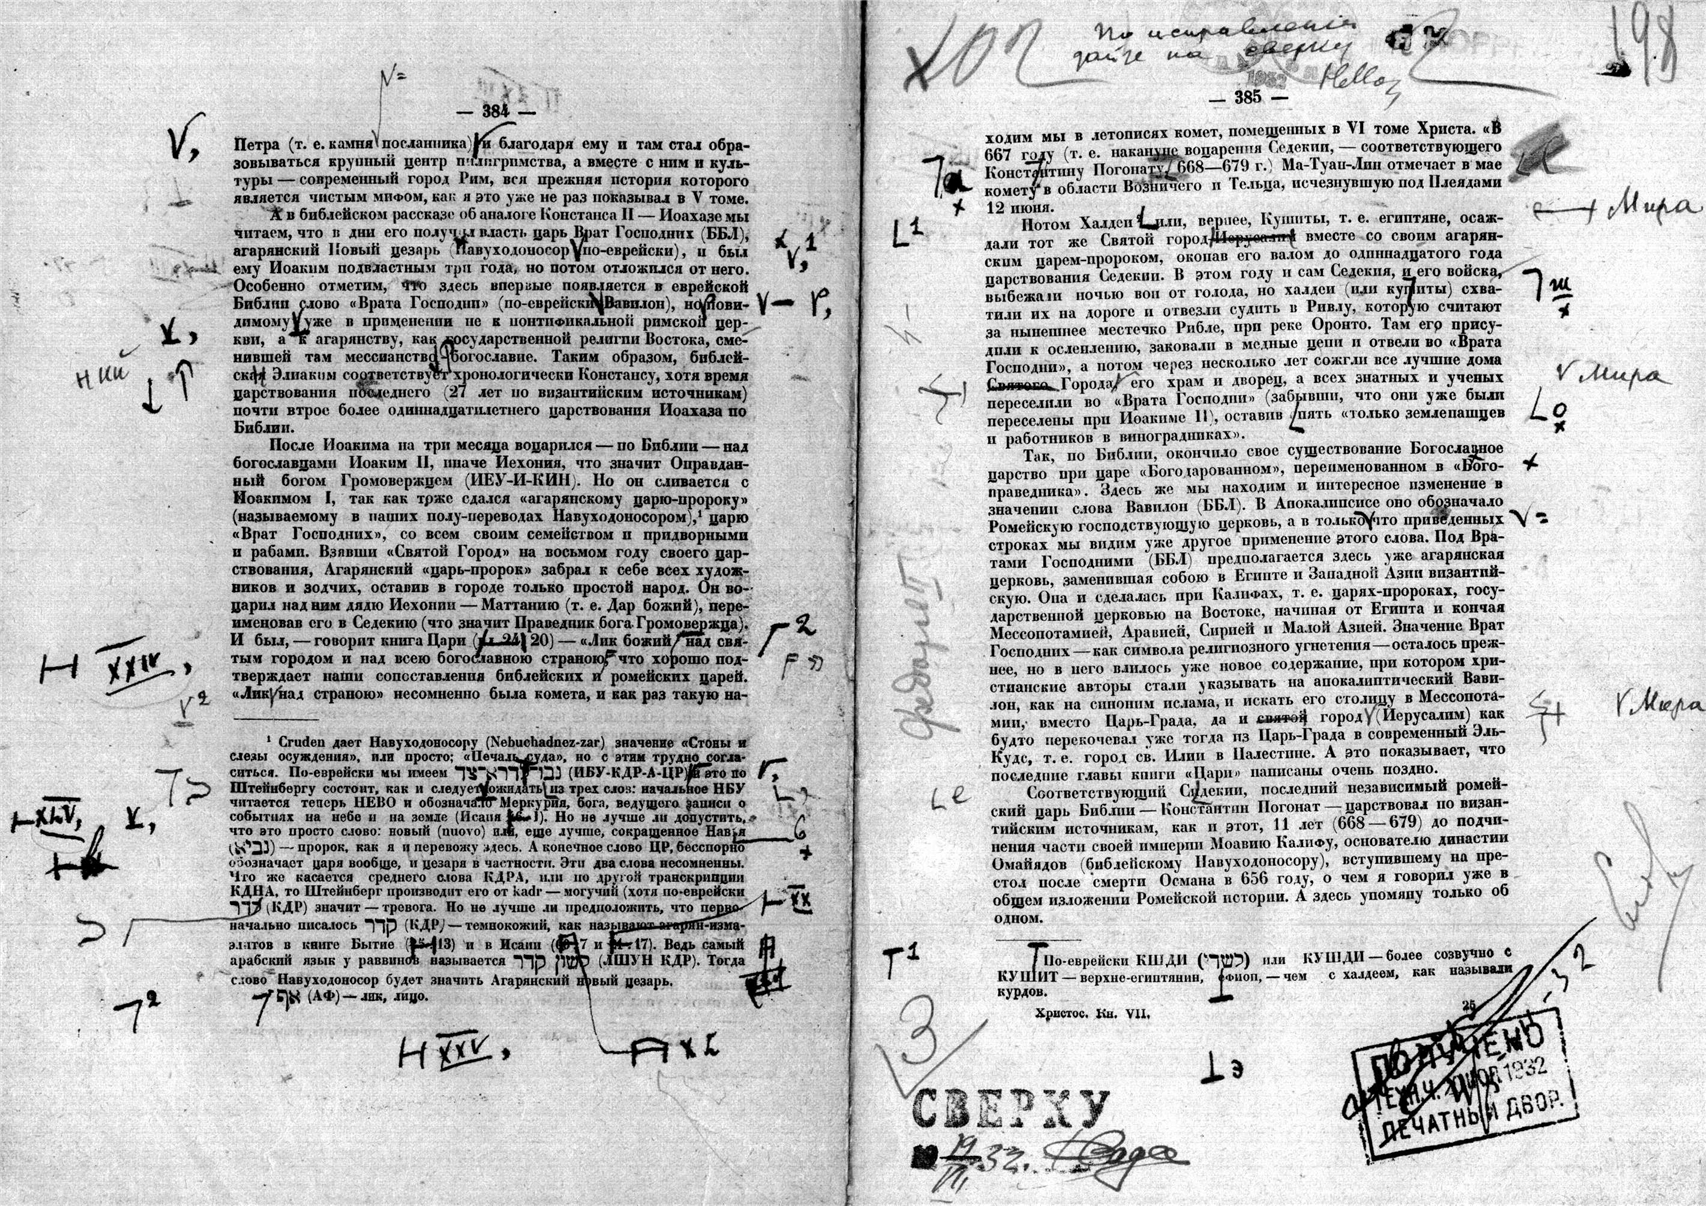 — 384 —
Петра (т. е. камня посланника) и благодаря ему и там стал обра-
зовываться крупный центр пилигримства, а вместе с ним и куль-
туры — современный город Рим, вся прежняя история которого
является чистым мифом, как я это уже не раз показывал в V томе.
А в библейском рассказе об аналоге Констанса II — Иоахазе мы
читаем, что в дни его получил власть царь Врат Господних (ББЛ),
агарянский Новый цезарь (Навуходоносор по-еврейски), и был
ему Иоаким подвластным три года, но потом отложился от него.
Особенно отметим, что здесь впервые появляется в еврейской
Библии слово «Врата Господни» (по-еврейски Вавилон), но пови-
димому уже в применении не к понтификальной римской цер-
кви, а к агарянству, как государственной религии Востока, сме-
нившей там мессианство богославие. Таким образом, библей-
ский Элиаким соответствует хронологически Констансу, хотя время
царствования последнего (27 лет по византийским источникам)
почти втрое более одиннадцатилетнего царствования Иоахаза по
Библии.
После Иоакима на три месяца воцарился — по Библии — над
богославцами Иоаким II, иначе Иехония, что значит Оправдан-
ный богом Громовержцем (ИЕУ-И-КИН). Но он сливается с
Иоакимом I, так как тоже сдался «агарянскому царю-пророку»
(называемому в наших полу-переводах Навуходоносором),¹ царю
«Врат Господних», со всем своим семейством и придворными
и рабами. Взявши «Святой Город» на восьмом году своего цар-
ствования, Агарянский «царь-пророк» забрал к себе всех худож-
ников и зодчих, оставив в городе только простой народ. Он во-
царил над ним дядю Иехонии — Маттанию (т. е. Дар божий), пере-
именовав его в Седекию (что значит Праведник бога Громовержца).
И был, — говорит книга Цари ( 24, 20) — «Лик божий над свя-
тым городом и над всею богославною страною, что хорошо под-
тверждает наши сопоставления библейских и ромейских царей.
«Лик над страною» несомненно была комета, и как раз такую на-
¹ Cruden дает Навуходоносору (Nebuchadnez-zar) значение «Стоны и
слезы осуждения», или просто: «Печаль суда», но с этим трудно согла-
ситься. По-еврейски мы имеем (НБУ-КДР-А-ЦР) и это по
Штейнбергу состоит, как и следует ожидать из трех слов: начальное НБУ
читается теперь НЕВО и обозначало Меркурия, бога, ведущего записи о
событиях на небе и на земле (Исаия 1). Но не лучше ли допустить,
что это просто слово: новый (nuovo) или, еще лучше, сокращенное
(נביא) — пророк, как я и перевожу здесь. А конечное слово ЦР, бесспорно
обозначает царя вообще, и цезаря в частности. Эти два слова несомненны.
Что же касается среднего слова КДРА, или по другой транскрипции
КДНА, то Штейнберг производит его от kadr — могучий (хотя по-еврейски
קדר (КДР) значит — тревога. Но не лучше ли предположить, что перво-
начально писалось קדר (КДР) — темнокожий, как называют агарян-изма-
элитов в книге Бытие ( 13) и в Исаии ( 7 и 17). Ведь самый
арабский язык у раввинов называется לשון קדר (ЛШУН КДР). Тогда
слово Навуходоносор будет значить Агарянский новый цезарь.
אף (АФ) — лик, лицо.
XXIV,
XLV,
XX
XXV,
XL
По исправлении
дайте на сверку
198
— 385 —
ходим мы в летописях комет, помещенных в VI томе Христа. «В
667 году (т. е. накануне воцарения Седекии, — соответствующего
Константину Погонату, 668—679 г.) Ма-Туан-Лин отмечает в мае
комету в области Возничего и Тельца, исчезнувшую под Плеядами
12 июня.
Потом Халдеи или, вернее, Кушиты, т. е. египтяне, осаж-
дали тот же Святой город Иерусалим вместе со своим агарян-
ским царем-пророком, окопав его валом до одиннадцатого года
царствования Седекии. В этом году и сам Седекия, и его войска,
выбежали ночью вон от голода, но халдеи (или купиты) схва-
тили их на дороге и отвезли судить в Ривлу, которую считают
за нынешнее местечко Рибле, при реке Оронто. Там его прису-
дили к ослеплению, заковали в медные цепи и отвели во «Врата
Господни», а потом через несколько лет сожгли все лучшие дома
Святого Города, его храм и дворец, а всех знатных и ученых
переселили во «Врата Господни» (забывши, что они уже были
переселены при Иоакиме II), оставив пять «только землепашцев
и работников в виноградниках».
Так, по Библии, окончило свое существование Богославное
царство при царе «Богодарованном», переименованном в «Бого-
праведника». Здесь же мы находим и интересное изменение в
значении слова Вавилон (ББЛ). В Апокалипсисе оно обозначало
Ромейскую господствующую церковь, а в только что приведенных
строках мы видим уже другое применение этого слова. Под Вра-
тами Господними (ББЛ) предполагается здесь уже агарянская
церковь, заменившая собою в Египте и Западной Азии византий-
скую. Она и сделалась при Калифах, т. е. царях-пророках, госу-
дарственной церковью на Востоке, начиная от Египта и кончая
Мессопотамией, Аравией, Сирией и Малой Азией. Значение Врат
Господних — как символа религиозного угнетения — осталось преж-
нее, но в него влилось уже новое содержание, при котором хри-
стианские авторы стали указывать на апокалиптический Вави-
лон, как на синоним ислама, и искать его столицу в Мессопота-
мии, вместо Царь-Града, да и святой город (Иерусалим) как
будто перекочевал уже тогда из Царь-Града в современный Эль-
Кудс, т. е. город св. Илии в Палестине. А это показывает, что
последние главы книги «Цари» написаны очень поздно.
Соответствующий Седекии, последний независимый ромей-
ский царь Библии — Константин Погонат — царствовал по визан-
тийским источникам, как и этот, 11 лет (668—679) до подчи-
нения части своей империи Моавию Калифу, основателю династии
Омайядов (библейскому Навуходоносору), вступившему на пре-
стол после смерти Османа в 656 году, о чем я говорил уже в
общем изложении Ромейской истории. А здесь упомяну только об
одном.
По-еврейски КШДИ (כשדי) или КУШДИ — более созвучно с
КУШИТ — верхне-египтянин, фиоп, — чем с халдеем, как называли
курдов.
Христос. Кн. VII.
25
Мира
Мира
Мира
СВЕРКУ
ПОЛУЧЕНО
ТЕХН.Ч. 1932
ПЕЧАТНЫЙ ДВОР.